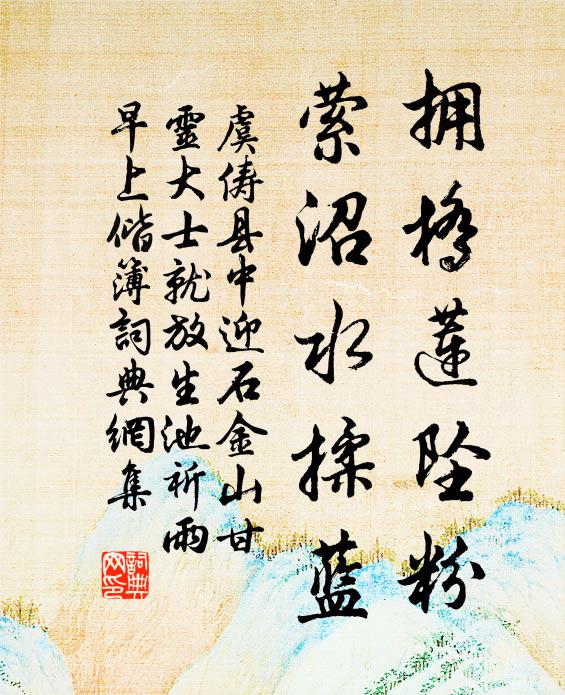 拥桥莲坠粉
萦沼水揉蓝
虞俦县中迎石金山甘
靈大士就放生池祈雨
早上偕簿詞典網集
詞典